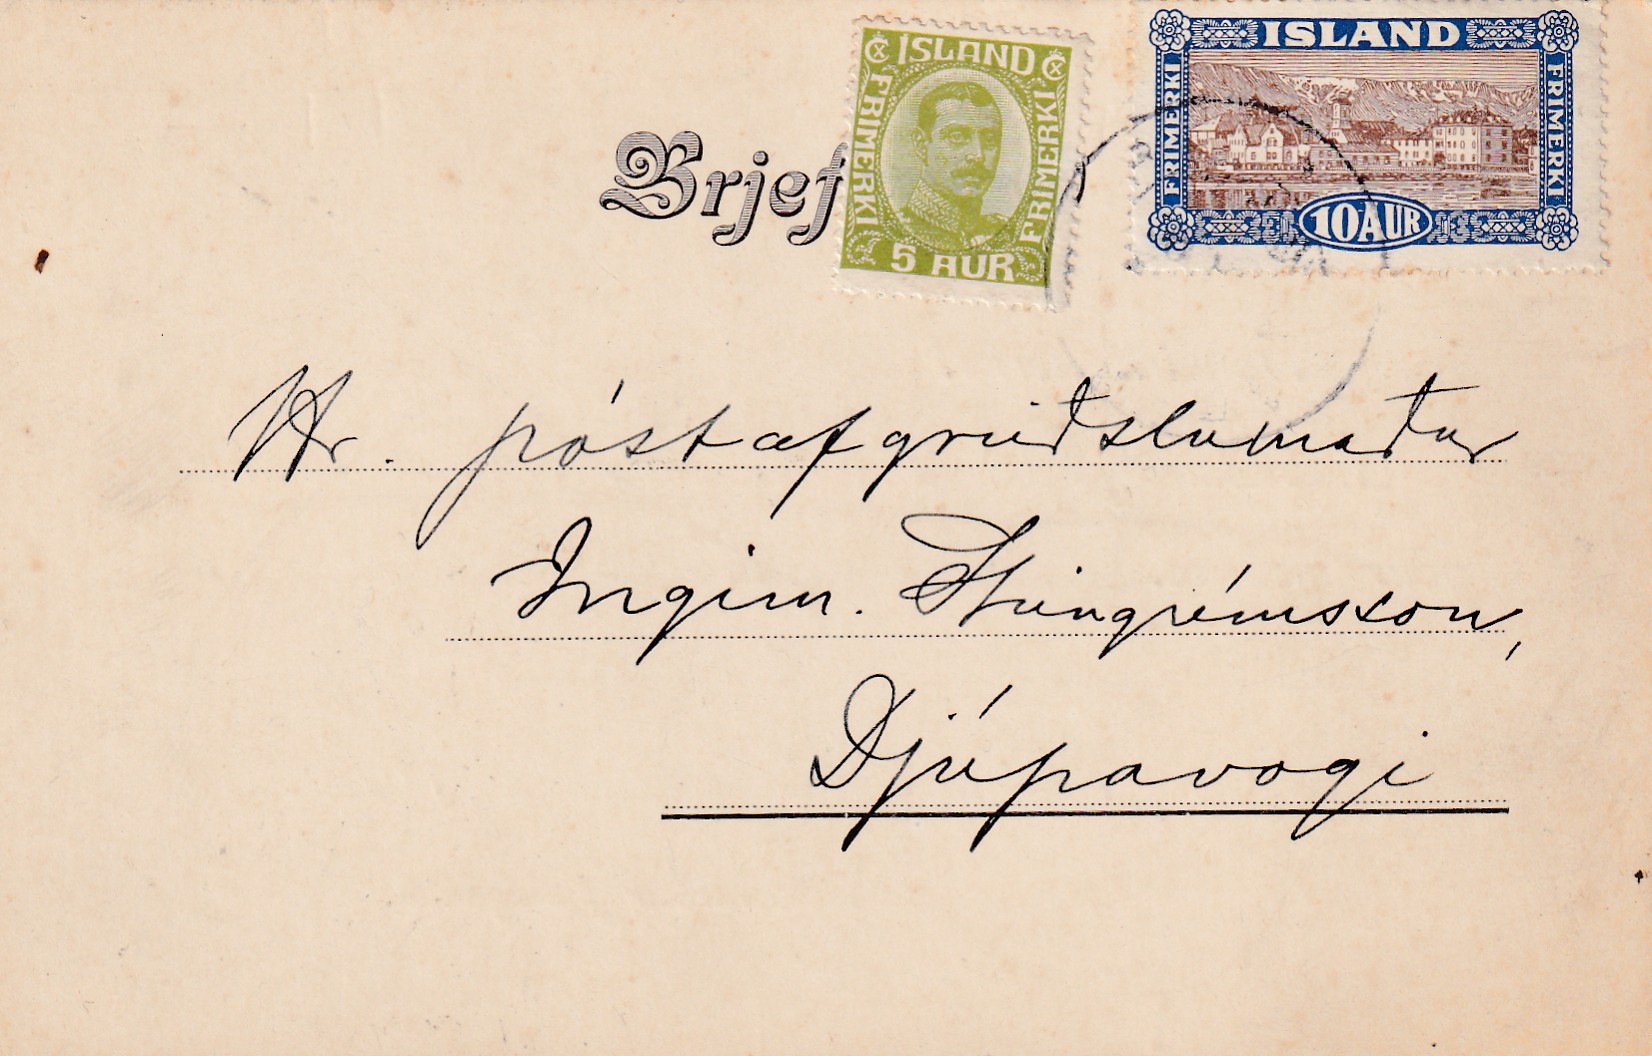 ÍSLAND
FRIMERKI
FRIMERKI
5 AUR
ISLAND
FRIMERKI
FRIMERKI
10 AUR
Brjef
Hr. póstafgreiðslumaður
Ingim. Steingrímsson,
Djúpavogi